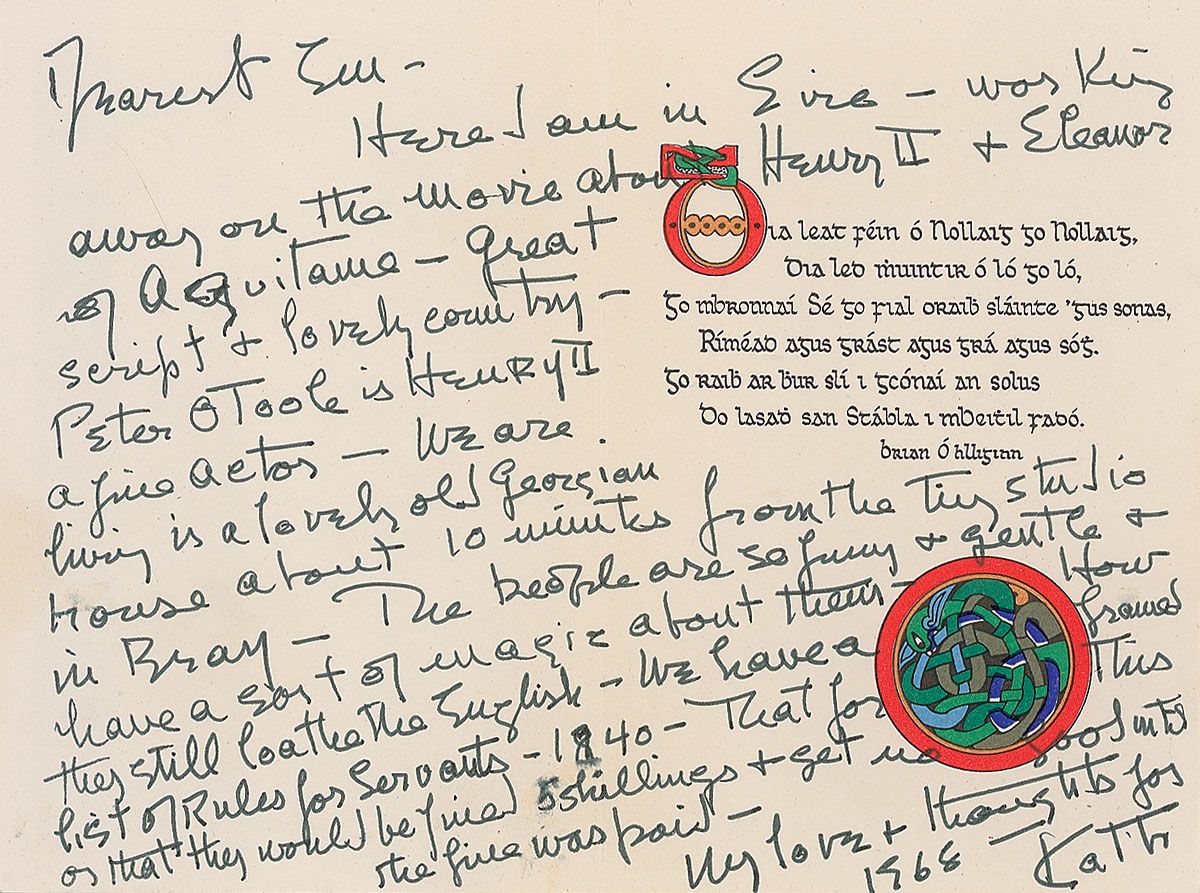 Dearest Em -
Here I am in Eire - working
away on the movie about Henry II + Eleanor
of Acquitaine - great
script + lovely country -
Peter OToole is Henry II
a fine actor - We are
living is a lovely old Georgian
house about 10 minutes from the Tiny studio
in Bray - The people are so funny + gentle +
have a sort of magic about them - How
they still loathe the English - We have a framed
list of Rules for Servants - 1840 - That for This
or that they would be fined 5 shillings + get no food until
the fine was paid - My love + thoughts for
1968 - Kath
Dia leat féin ó Nollaig go Nollaig,
Dia led ṁuintir ó ló go ló,
Go mbronnaí Sé go fial oraiḃ sláinte 'gus sonas,
Ríméad agus grást agus grá agus sóġ.
Go raiḃ ar ḃur slí i gcónaí an solus
Do lasaḋ san Stábla i mBeiṫil fadó.
Brian Ó hUiginn